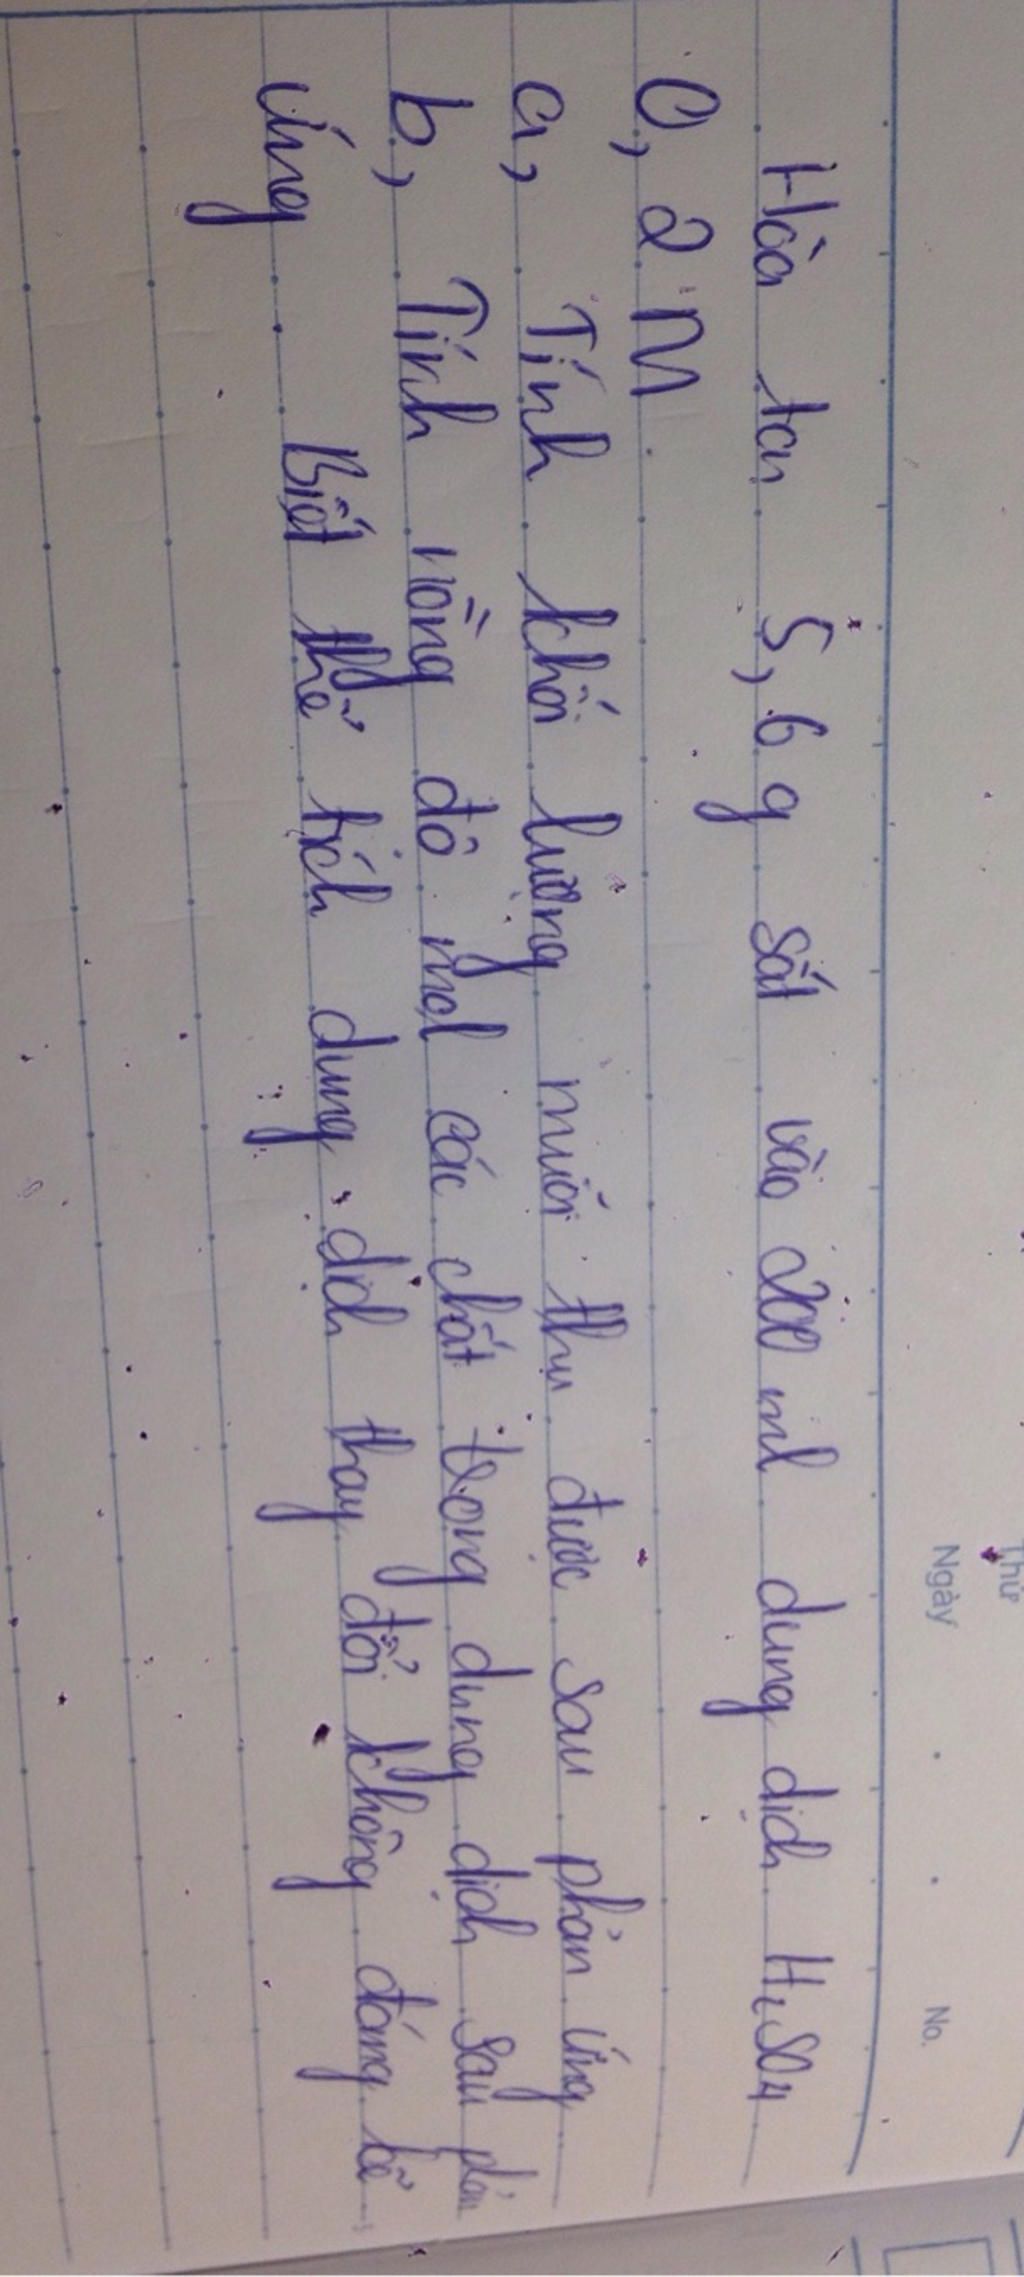 Thứ
Ngày
No.
Hòa tan 5,6 g sắt vào 200 ml dung dịch H2SO4
0,2 M
a, Tính khối lượng muối thu được sau phản ứng
b, Tính nồng độ mol các chất trong dung dịch sau phản
ứng Biết thể tích dung dịch thay đổi không đáng kể